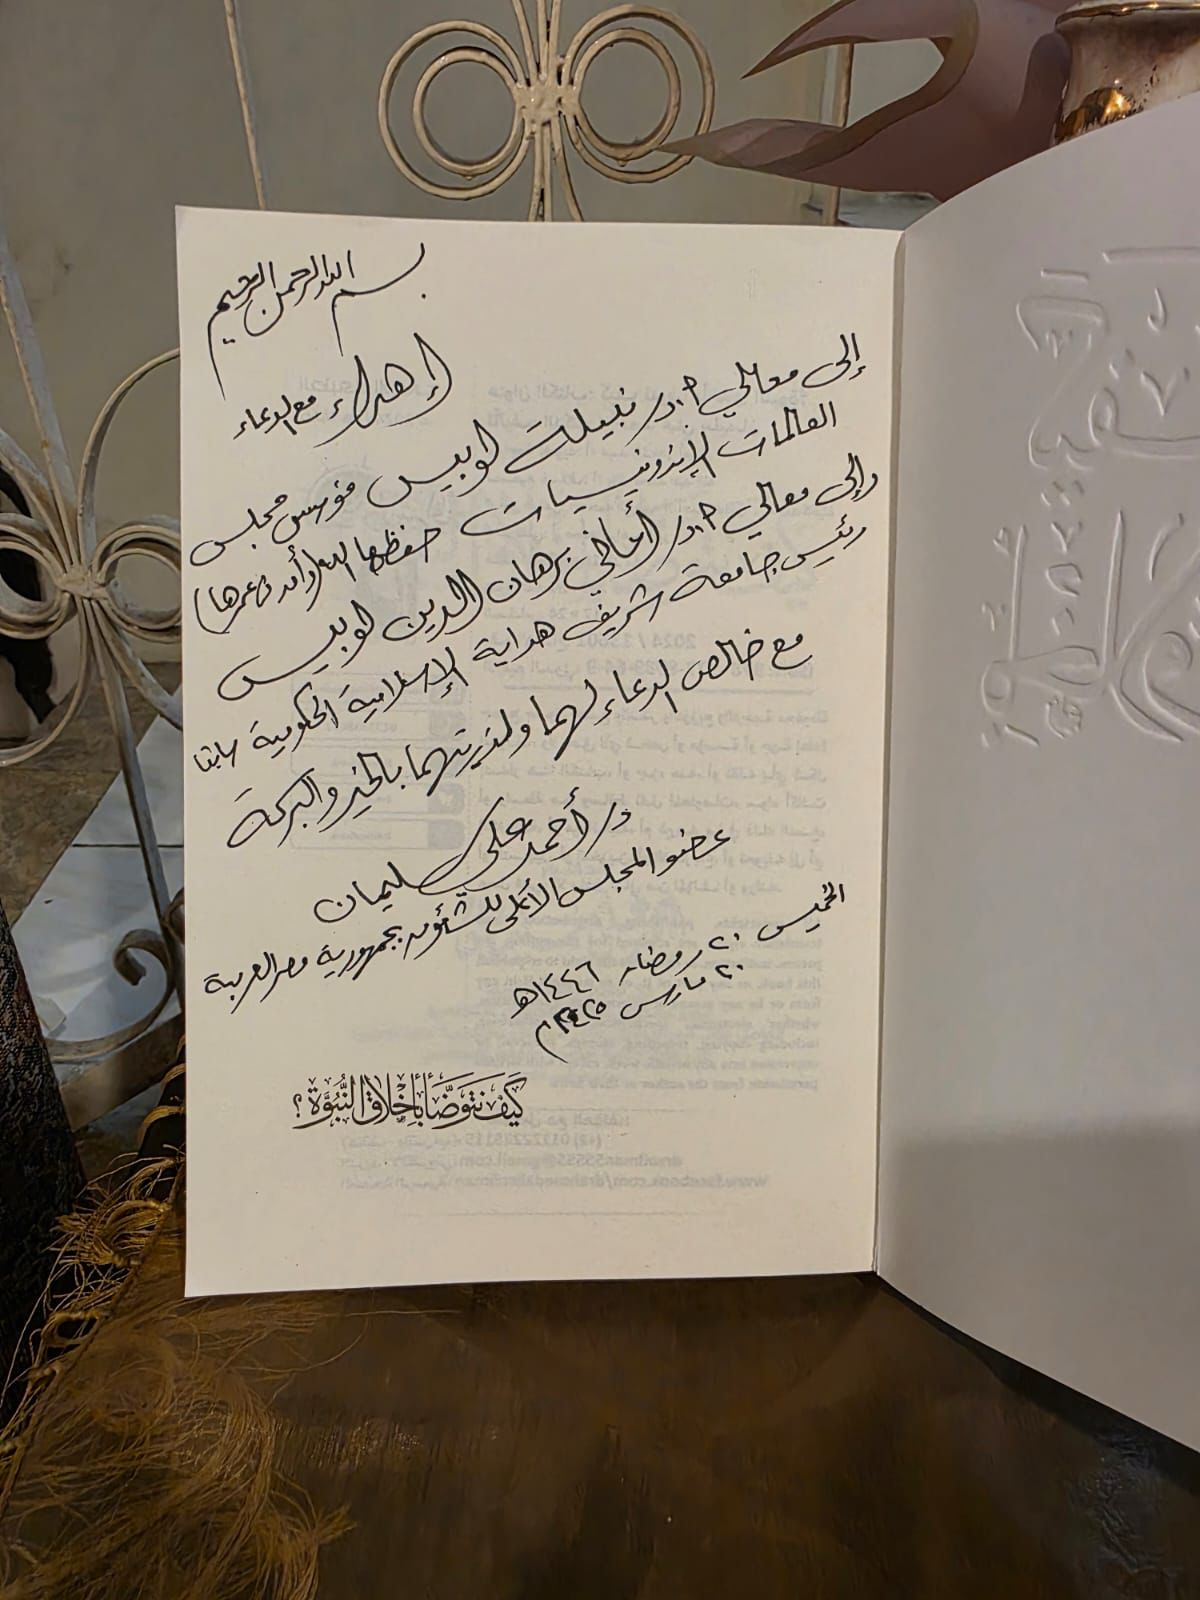 بسم الله الرحمن الرحيم
إهداء مع الدعاء
إلى معالي أ.د. نبيلة لوبيس مؤسس مجلس
العالمات الإندونيسيات حفظها الله (وأمد في عمرها)
وإلى معالي أ.د. أماني برهان الدين لوبيس
رئيس جامعة شريف هداية الإسلامية الحكومية سابقا
مع خالص الدعاء لهما ولذريتهما بالخير والبركة
د/ أحمد علي سليمان
عضو المجلس الأعلى للشؤون بجمهورية مصر العربية
الخميس ٢٠ رمضان ١٤٤٦هـ
٢٠ مارس ٢٠٢٥م
كَيْفَ نَتَوَضَّأُ بِأَخْلَاقِ النُّبُوَّةِ؟